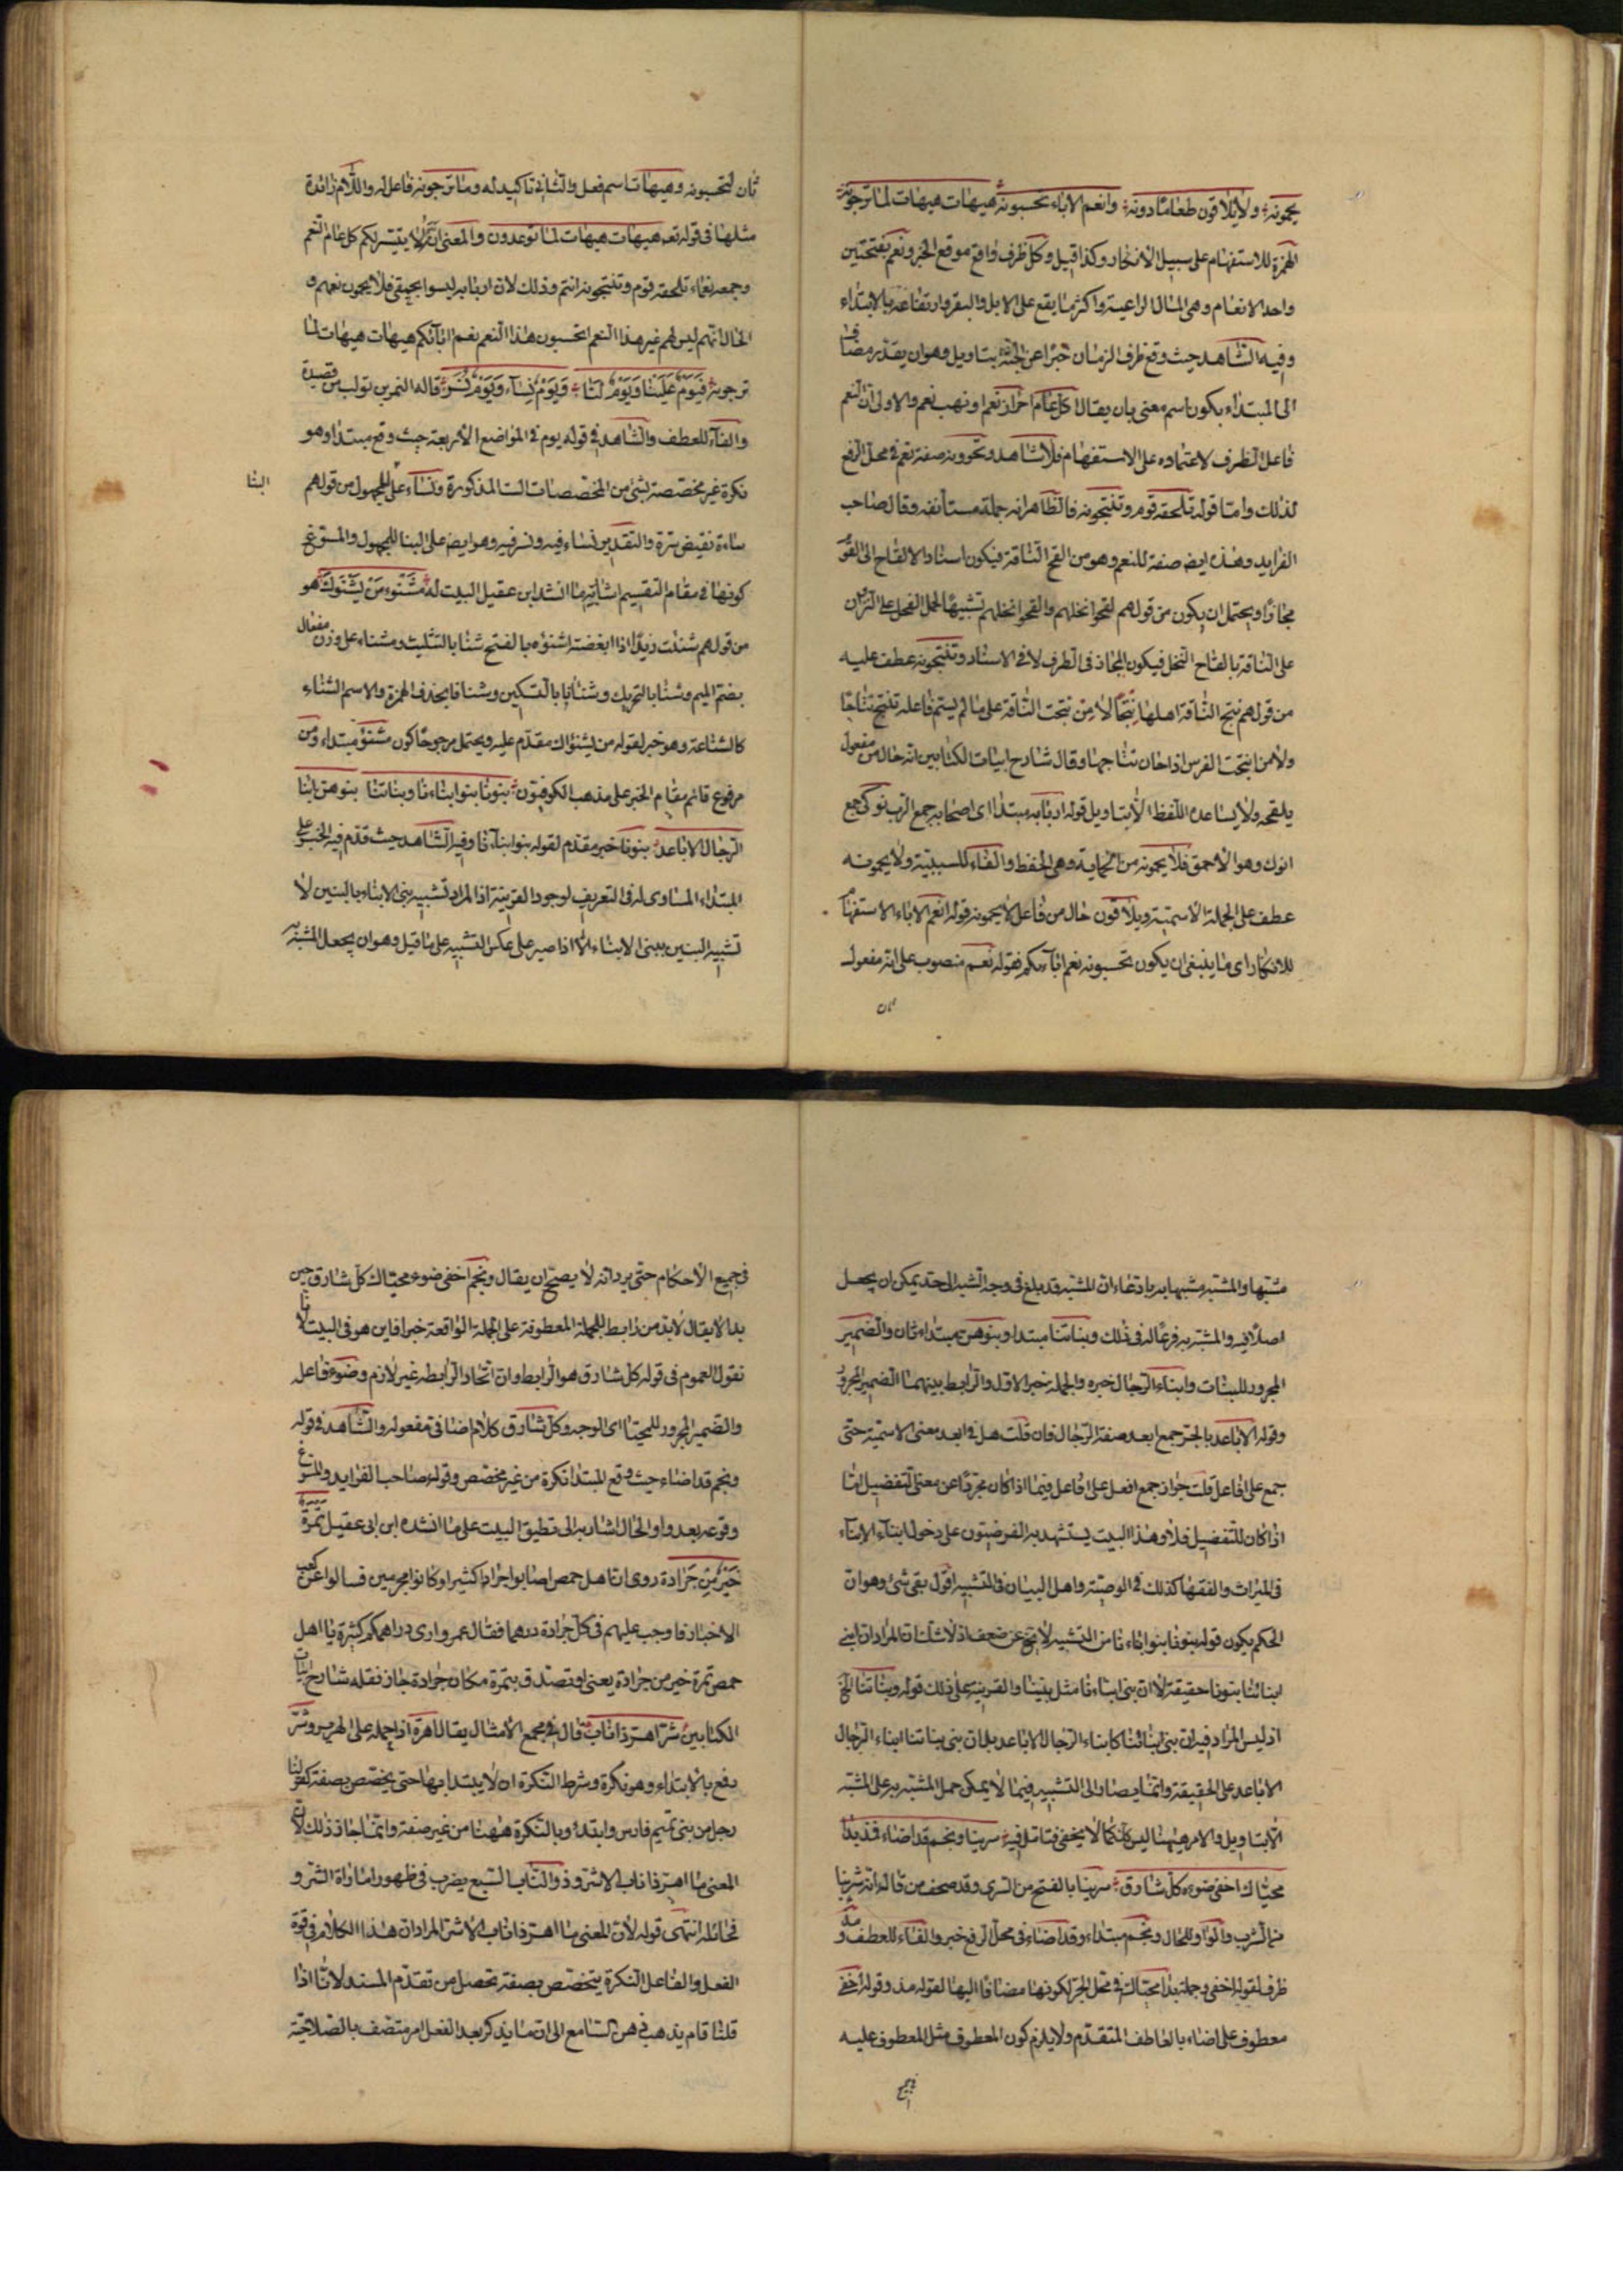 يحمونه ولا يلاقون طعانا دونه وانعم الاباء تحسبونه هيهات هيهات لما ترجونه
الهمزة للاستفهام على سبيل الانكار وكذا قيل وكل ظرف واقع موقع الخبر ونعم بفتحتين
واحد الانعام وهي المال الراعية واكثر ما يقع على الابل والبقر وارتفاعه بالابتداء
وفيه الشاهد حيث وقع ظرف الزمان خبرا عن الجثة بتاويل وهو ان يقدر مضاف
الى المبتداء يكون اسم معنى بان يقال اكل عام احراز نعم او نهب نعم والاولى ان النعم
فاعل الظرف لاعتماده على الاستفهام فلا شاهد وتحوونه صفة نعم في محل الرفع
لذلك واما قوله تلحقه قوم وتنتجونه فالظاهر انه جملة مستأنفه وقال صاحب
الفرايد وهذه ايض صفة للنعم وهو من القح الناقة فيكون اسناد الالقاح الى القوم
مجازا ويحتمل ان يكون من قولهم لقحوا نخلهم والقحوا نخلهم تشبيها لحمل الفحل على النزوان
على الناقة بالقاح النخل فيكون المجاز في الطرف لا في الاسناد وتنتجونه عطف عليه
من قولهم نتج الناقة اهلها نتجا لا من نتجت الناقة على ما لم يسم فاعله تنتج نتاجا
ولا من انتجت الفرس اذا حان نتاجها وقال شارح ابيات الكتابين انه حال من مفعول
يلقحه ولا يساعده اللفظ الا بتاويل قوله اربابه مبتدا اى اصحابه جمع الرب نوكى جمع
انوك وهو الاحمق فلا يحمونه من الحماية وهي الحفظ والفاء للسببية ولا يحمونه
عطف على الجملة الاسمية ويلاقون حال من فاعل لا يحمونه قوله انعم الاباء الاستفهام
للانكار اى ما ينبغى ان يكون تحسبونه نعم ابآءكم فقوله نعم منصوب على انه مفعول
ثان
ثان لتحسبونه وهيهات اسم فعل والثاني تاكيد له وما ترجونه فاعل له واللام زائدة
مثلها في قوله تعه هيهات هيهات لما توعدون والمعنى انه لا يتيسر لكم كل عام نعم
وجمعه نعاء تلحقه قوم وتنتجونه انتم وذلك لان اربابه ليسوا بحيقى فلا يحمون نعمهم و
الحال انهم ليس لهم غير هذا النعم اتحسبون هذا النعم نعم ابآئكم هيهات هيهات لما
ترجونه فيوم علينا ويوم لنا ويوم نساء ويوم نسر قاله النمر بن تولب من قصيدة
والفآء للعطف والشاهد في قوله يوم في المواضع الاربعة حيث وقع مبتدا وهو
نكرة غير مخصصة بشئ من المخصصات الست المذكورة ونساء على المجهول من قولهم
البنا
ساءة نقيض سرة والتقدير نساء فيه ونسر فيه وهو ايض على البنا للمجهول والمسوغ
كونها في مقام التقسيم اشار بها انشد ابن عقيل البيت له مشنوء من يشنؤك هو
من قولهم شنئت زيدا اذا ابغضته اشنؤه بالفتح شنا بالتثليث ومشناء على وزن مفعال
بضم الميم وشنا بالتحريك وشنانا بالتسكين وشنانا بحذف الهمزة والاسم الشناء
كالشناعة وهو خبر لقوله من يشنؤك مقدم عليه ويحتمل مرجوحا كون مشنؤ مبتداء ومن
مرفوع قائم مقام الخبر على مذهب الكوفيون بنونا بنوا ابناءنا وبناتنا بنوهن ابنا
الرجال الاباعد بنونا خبر مقدم لقوله بنوا ابنآءنا وفيه الشاهد حيث قدم فيه الخبر على
المبتداء المساوى له في التعريف لوجود القرينة اذ المراد تشبيه بنى الابناء بالبنين لا
تشبيه البنين ببنى الابناء الا اذا صير على عكس التشبيه على ما قيل وهو ان يجعل المشبه به
مشبها والمشبه مشبها به بادعاء ان المشبه قد بلغ في وجه الشبه الى حد يمكن ان يجعل
اصلا فيه والمشبه به فرعا له في ذلك وبناتنا مبتدا وبنوهن مبتداء ثان والضمير
المجرور للبنات وابناء الرجال خبره والجملة خبر الاول والرابط بينهما الضمير المجرور
وقوله الاباعد بالجر جمع ابعد صفة الرجال فان قلت هل في ابعد معنى الاسمية حتى
جمع على افاعل قلت جواز جمع افعل على افاعل فيما اذا كان مجردا عن معنى التفضيل اما
اذا كان للتفضيل فلا وهذا البيت يستشهد به الفرضيون على دخول ابناء الابنآء
في الميراث والفقها كذلك في الوصية واهل البيان في التشبيه اقول بقى شئ وهو ان
الحكم يكون قوله بنونا بنوا ابناءنا من التشبيه لا يخ عن ضعف اذ لا شك ان المراد ان بنى
ابنائنا بنونا حقيقة لا ان بنى ابناءنا مثل بنينا والقرينة على ذلك قوله وبناتنا الخ
اذ ليس المراد فيه ان بنى ابنائنا كابناء الرجال الاباعد بل ان بنى بناتنا ابناء الرجال
الاباعد على الحقيقة وانما يصار الى التشبيه فيما لا يمكن حمل المشبه به على المشبه
الا بتاويل والامر ههنا ليس كك كما لا يخفى فتامل فيه سرينا ونجم قد اضاء فمذ بدا
محياك اخفى ضوءه كل شارق سرينا بالفتح من السرى وقد صحف من قال انه شربنا
من الشرب والواو للحال ونجم مبتداء وقد اضاء في محل الرفع خبر والفاء للعطف ومذ
ظرف لقوله اخفى وجملة بدا محياك في محل الجر لكونها مضافا اليها لقوله مذ وقوله اخفى
معطوف على اضاء بالعاطف المتقدم ولا يلزم كون المعطوف مثل المعطوف عليه
في جميع
في جميع الاحكام حتى يرد انه لا يصح ان يقال ونجم اخفى ضوء محياك كل شارق حين
بدا لا يقال لابد من رابط للجملة المعطوفة على الجملة الواقعة خبرا فاين هو في البيت لانا
نقول العموم في قوله كل شارق هو الرابط وان اتحاد الرابطه غير لازم وضوءه فاعله
والضمير المجرور للمحيا اى الوجه وكل شارق كلام اضافى مفعوله والشاهد في قوله
ونجم قد اضاء حيث وقع المبتدا نكرة من غير مخصص وقوله صاحب الفرايد والمسوغ
وقوعه بعد واو الحال اشار به الى تطبيق البيت على ما انشده ابن ابى عقيل تمرة
خير من جرادة روى ان اهل حمص اصابوا جرادا كثيرا وكانوا محرمين فسالوا عن كعب
الاخبار فاوجب عليهم في كل جرادة درهما فقال عمر وارى دراهمكم كثيرة يا اهل
حمص تمرة خير من جرادة يعنى لو تصدق بتمرة مكان جرادة جاز نقله شارح ابيات
الكتابين شر اهر ذا ناب قال في مجمع الامثال يقال اهره اذا حمله على الهرير وشر
رفع بالابتداء وهو نكرة وشرط النكرة ان لا يبتدا بها حتى يخصص بصفة كقولنا
رجل من بنى تميم فارس وابتدؤ بالنكرة ههنا من غير صفة وانما جاز ذلك لان
المعنى ما اهر ذا ناب الا شر وذو الناب السبع يضرب في ظهور امارات الشر و
مخائله انتهى قوله لان المعنى ما اهر ذا ناب الا شر المراد ان هذا الكلام في قوة
الفعل والفاعل النكرة يتخصص بصفة تحصل من تقدم المسند لانا اذا
قلنا قام يذهب ذهن السامع الى ان ما يذكر بعد الفعل امر متصف بالصلاحية